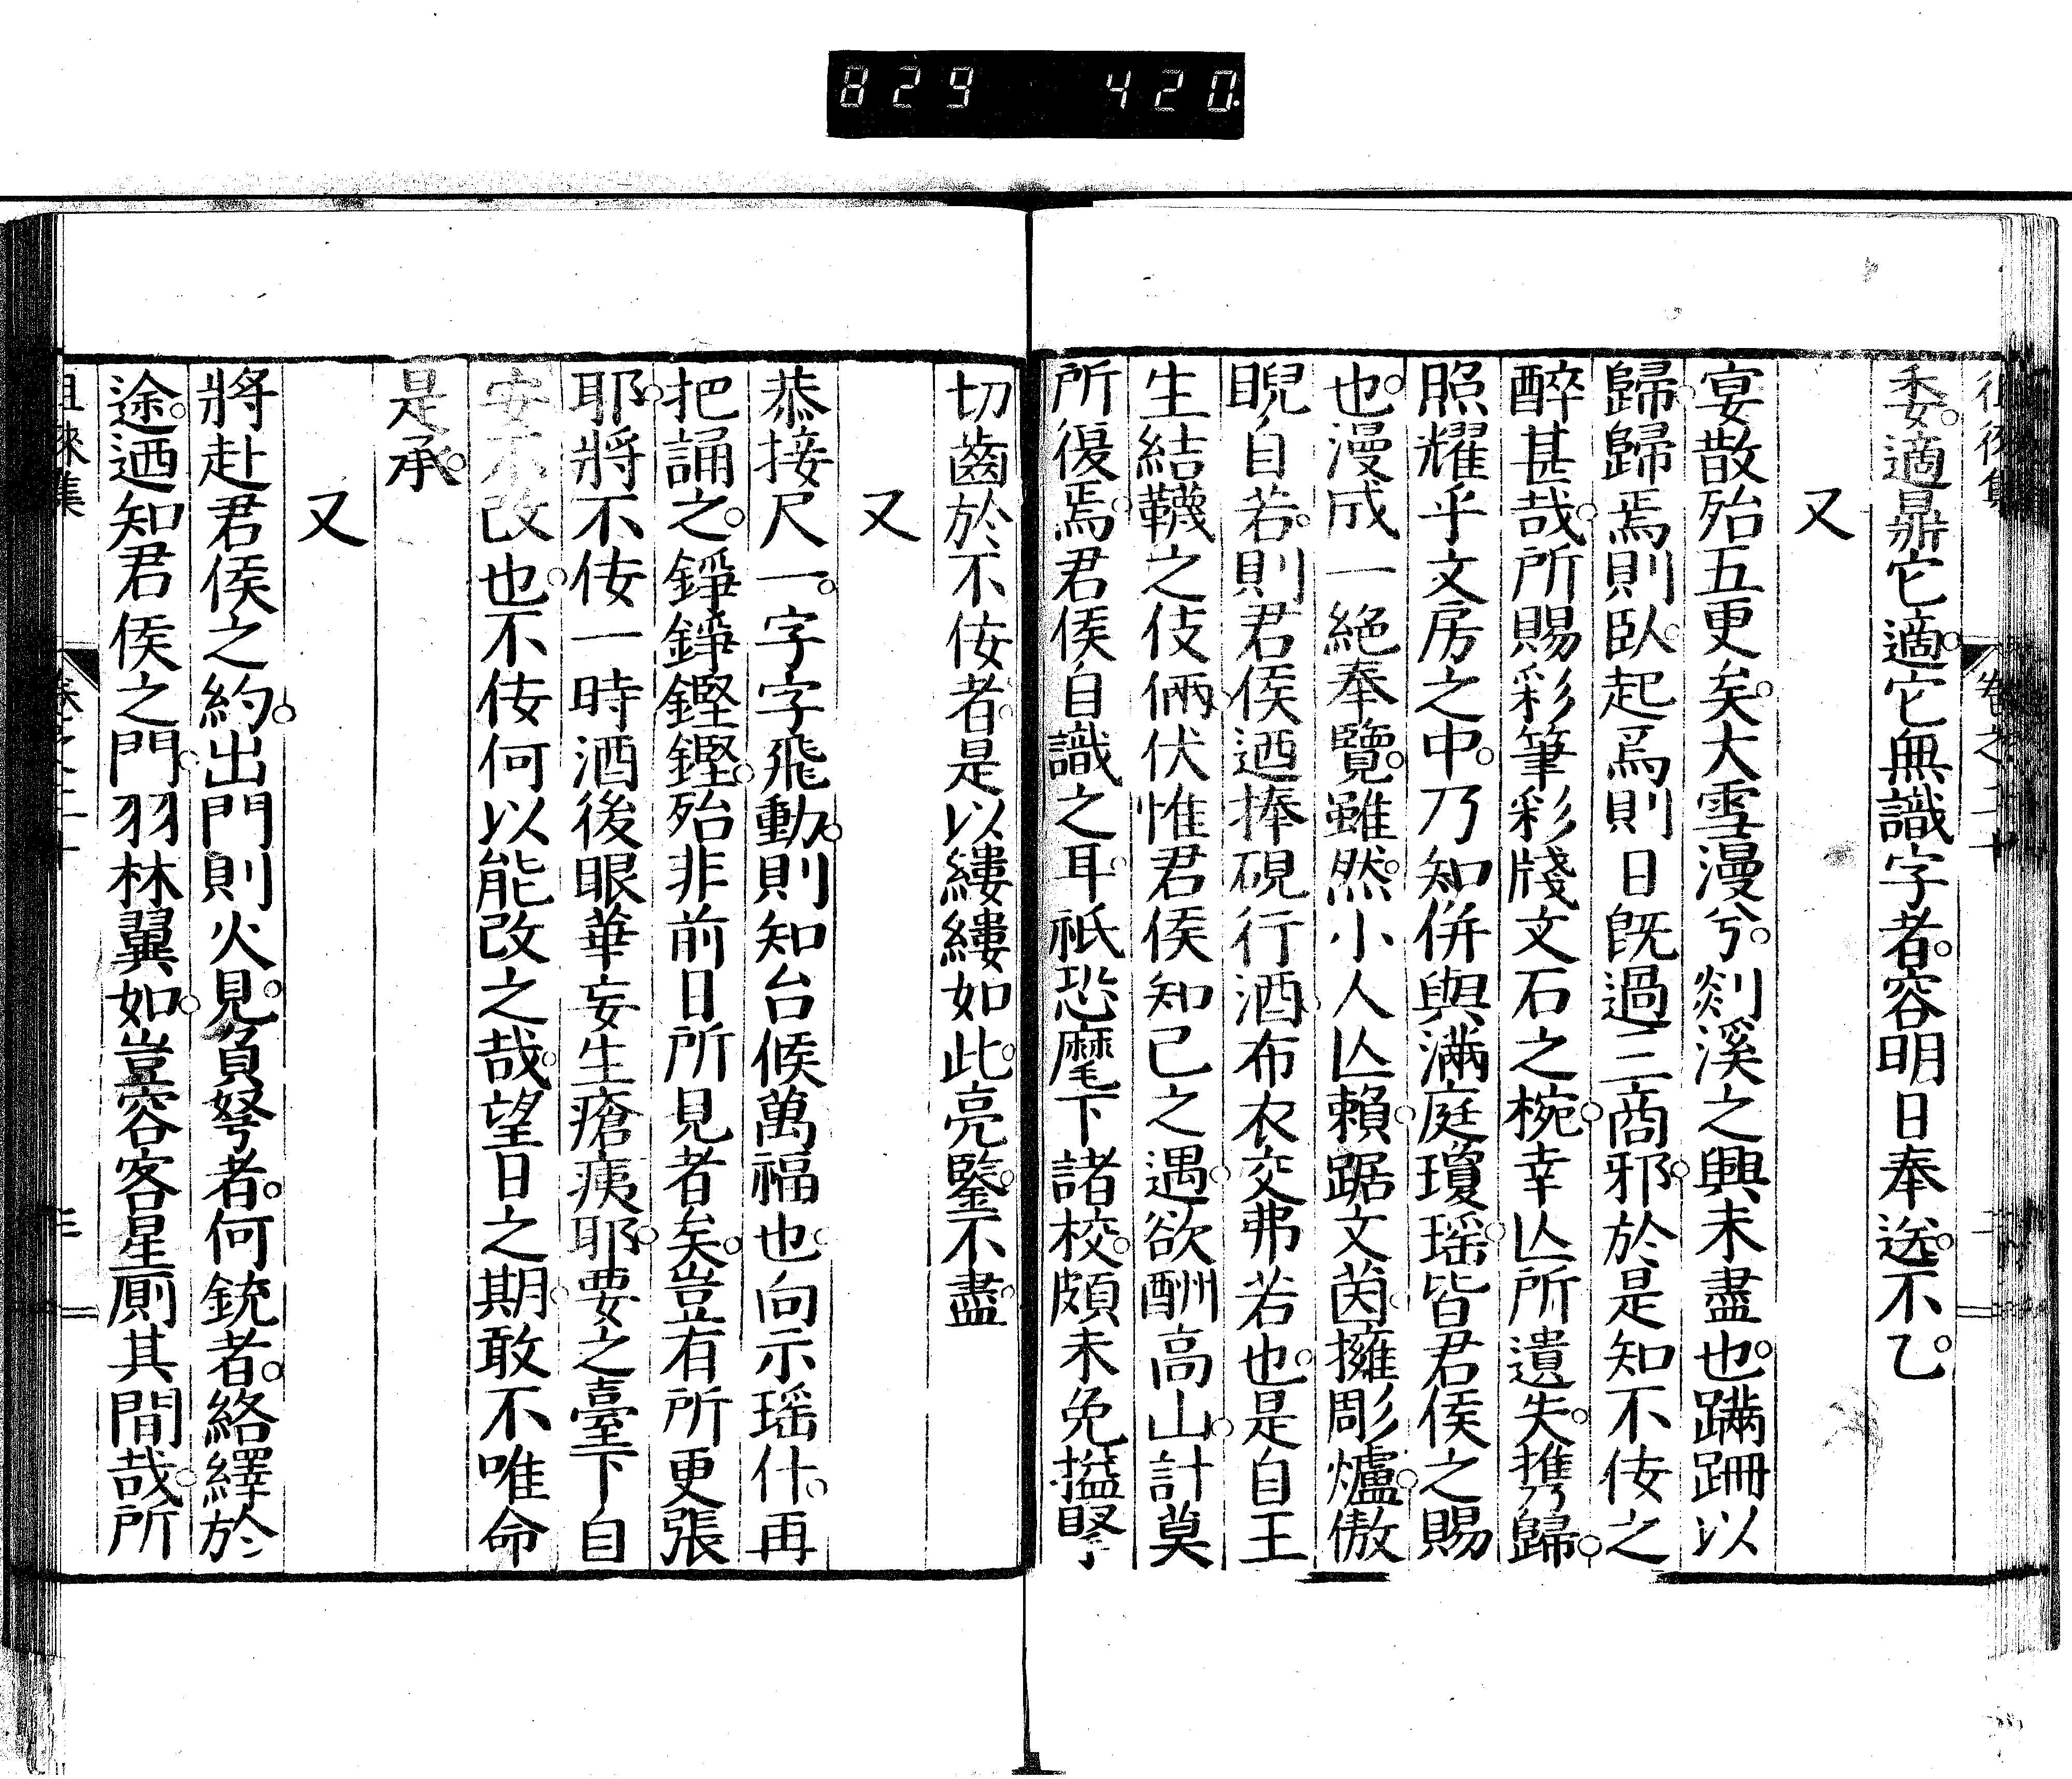 829 420.
委。適鼎它。適它無識字者。容明日奉送。不乙。
又
宴散殆五更矣。大雪漫兮。剡溪之興未盡也。蹣跚以
歸。歸焉則臥。起焉則日既過三商邪。於是知不佞之
醉甚哉。所賜彩筆彩牋文石之椀。幸亾所遺失。携歸。
照耀乎文房之中。乃知併與滿庭瓊瑶。皆君侯之賜
也。漫成一絕奉覽。雖然。小人亾賴。踞文茵。擁彫爐。傲
睨自若。則君侯迺捧硯行酒。布衣交弗若也。是自王
生結韈之伎倆。伏惟君侯知己之遇。欲酬高山。計莫
所復焉。君侯自識之耳。祇恐麾下諸校。頗未免搤掔
切齒於不佞者。是以縷縷如此。亮鑒。不盡。
又
恭接尺一。字字飛動。則知台候萬福也。向示瑶什。再
把誦之。錚錚鏗鏗。殆非前日所見者矣。豈有所更張
耶。將不佞一時酒後眼華妄生瘡痍耶。要之臺下自
安不改也。不佞何以能改之哉。望日之期。敢不唯命
是承。
又
將赴君侯之約。出門則火見。負弩者。何銃者。絡繹於
途。迺知君侯之門。羽林翼如。豈容客星廁其間哉。所